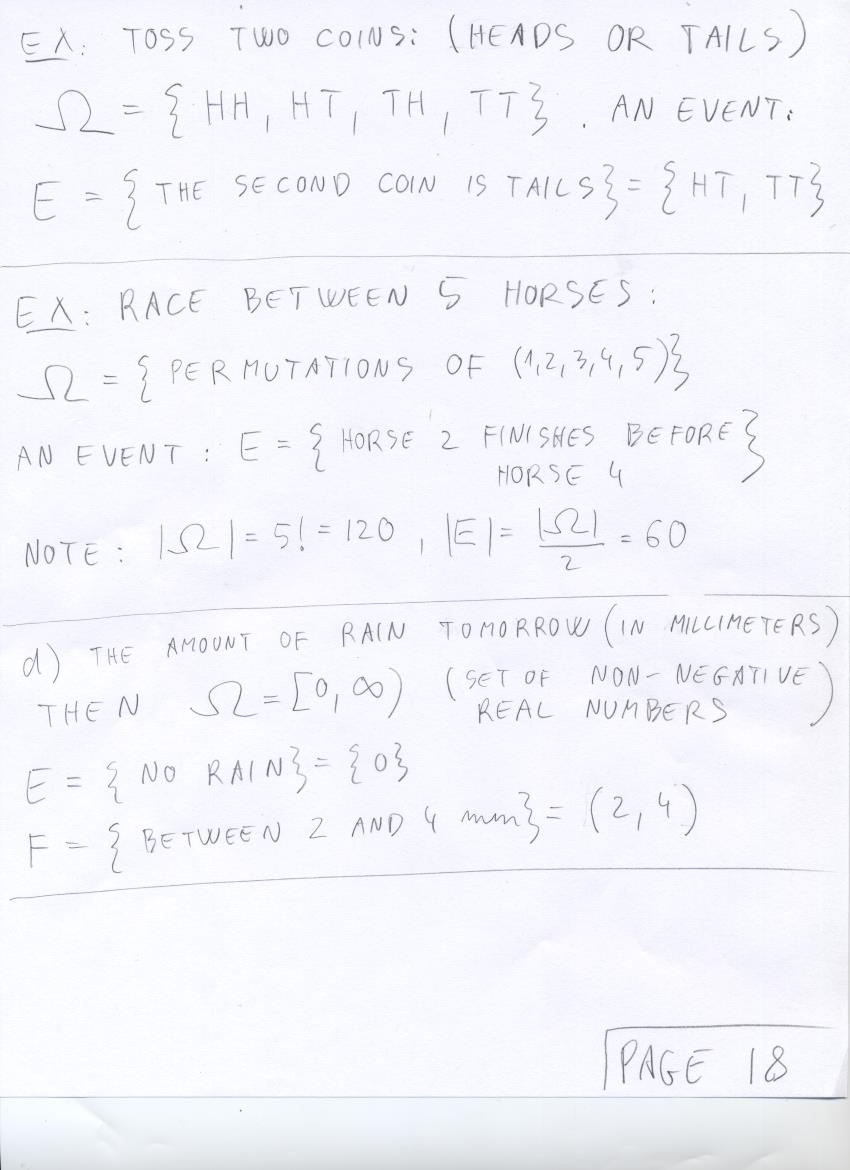 EX: TOSS TWO COINS: (HEADS OR TAILS)
Ω = {HH, HT, TH, TT}. AN EVENT:
E = {THE SECOND COIN IS TAILS} = {HT, TT}
EX: RACE BETWEEN 5 HORSES:
Ω = {PERMUTATIONS OF (1,2,3,4,5)}
AN EVENT: E = {HORSE 2 FINISHES BEFORE
HORSE 4}
NOTE: |Ω| = 5! = 120, |E| = |Ω|/2 = 60
d) THE AMOUNT OF RAIN TOMORROW (IN MILLIMETERS)
THEN Ω = [0, ∞) (SET OF NON-NEGATIVE
REAL NUMBERS)
E = {NO RAIN} = {0}
F = {BETWEEN 2 AND 4 mm} = (2, 4)
PAGE 18